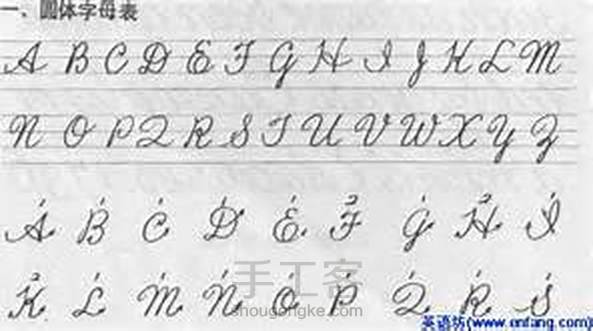 一、圆体字母表
A B C D E F G H I J K L M
N O P Q R S T U V W X Y Z
A B C D E F G H I
K L M N O P Q R S
手工客
shougongke.com
英语坊(www.enfang.com)